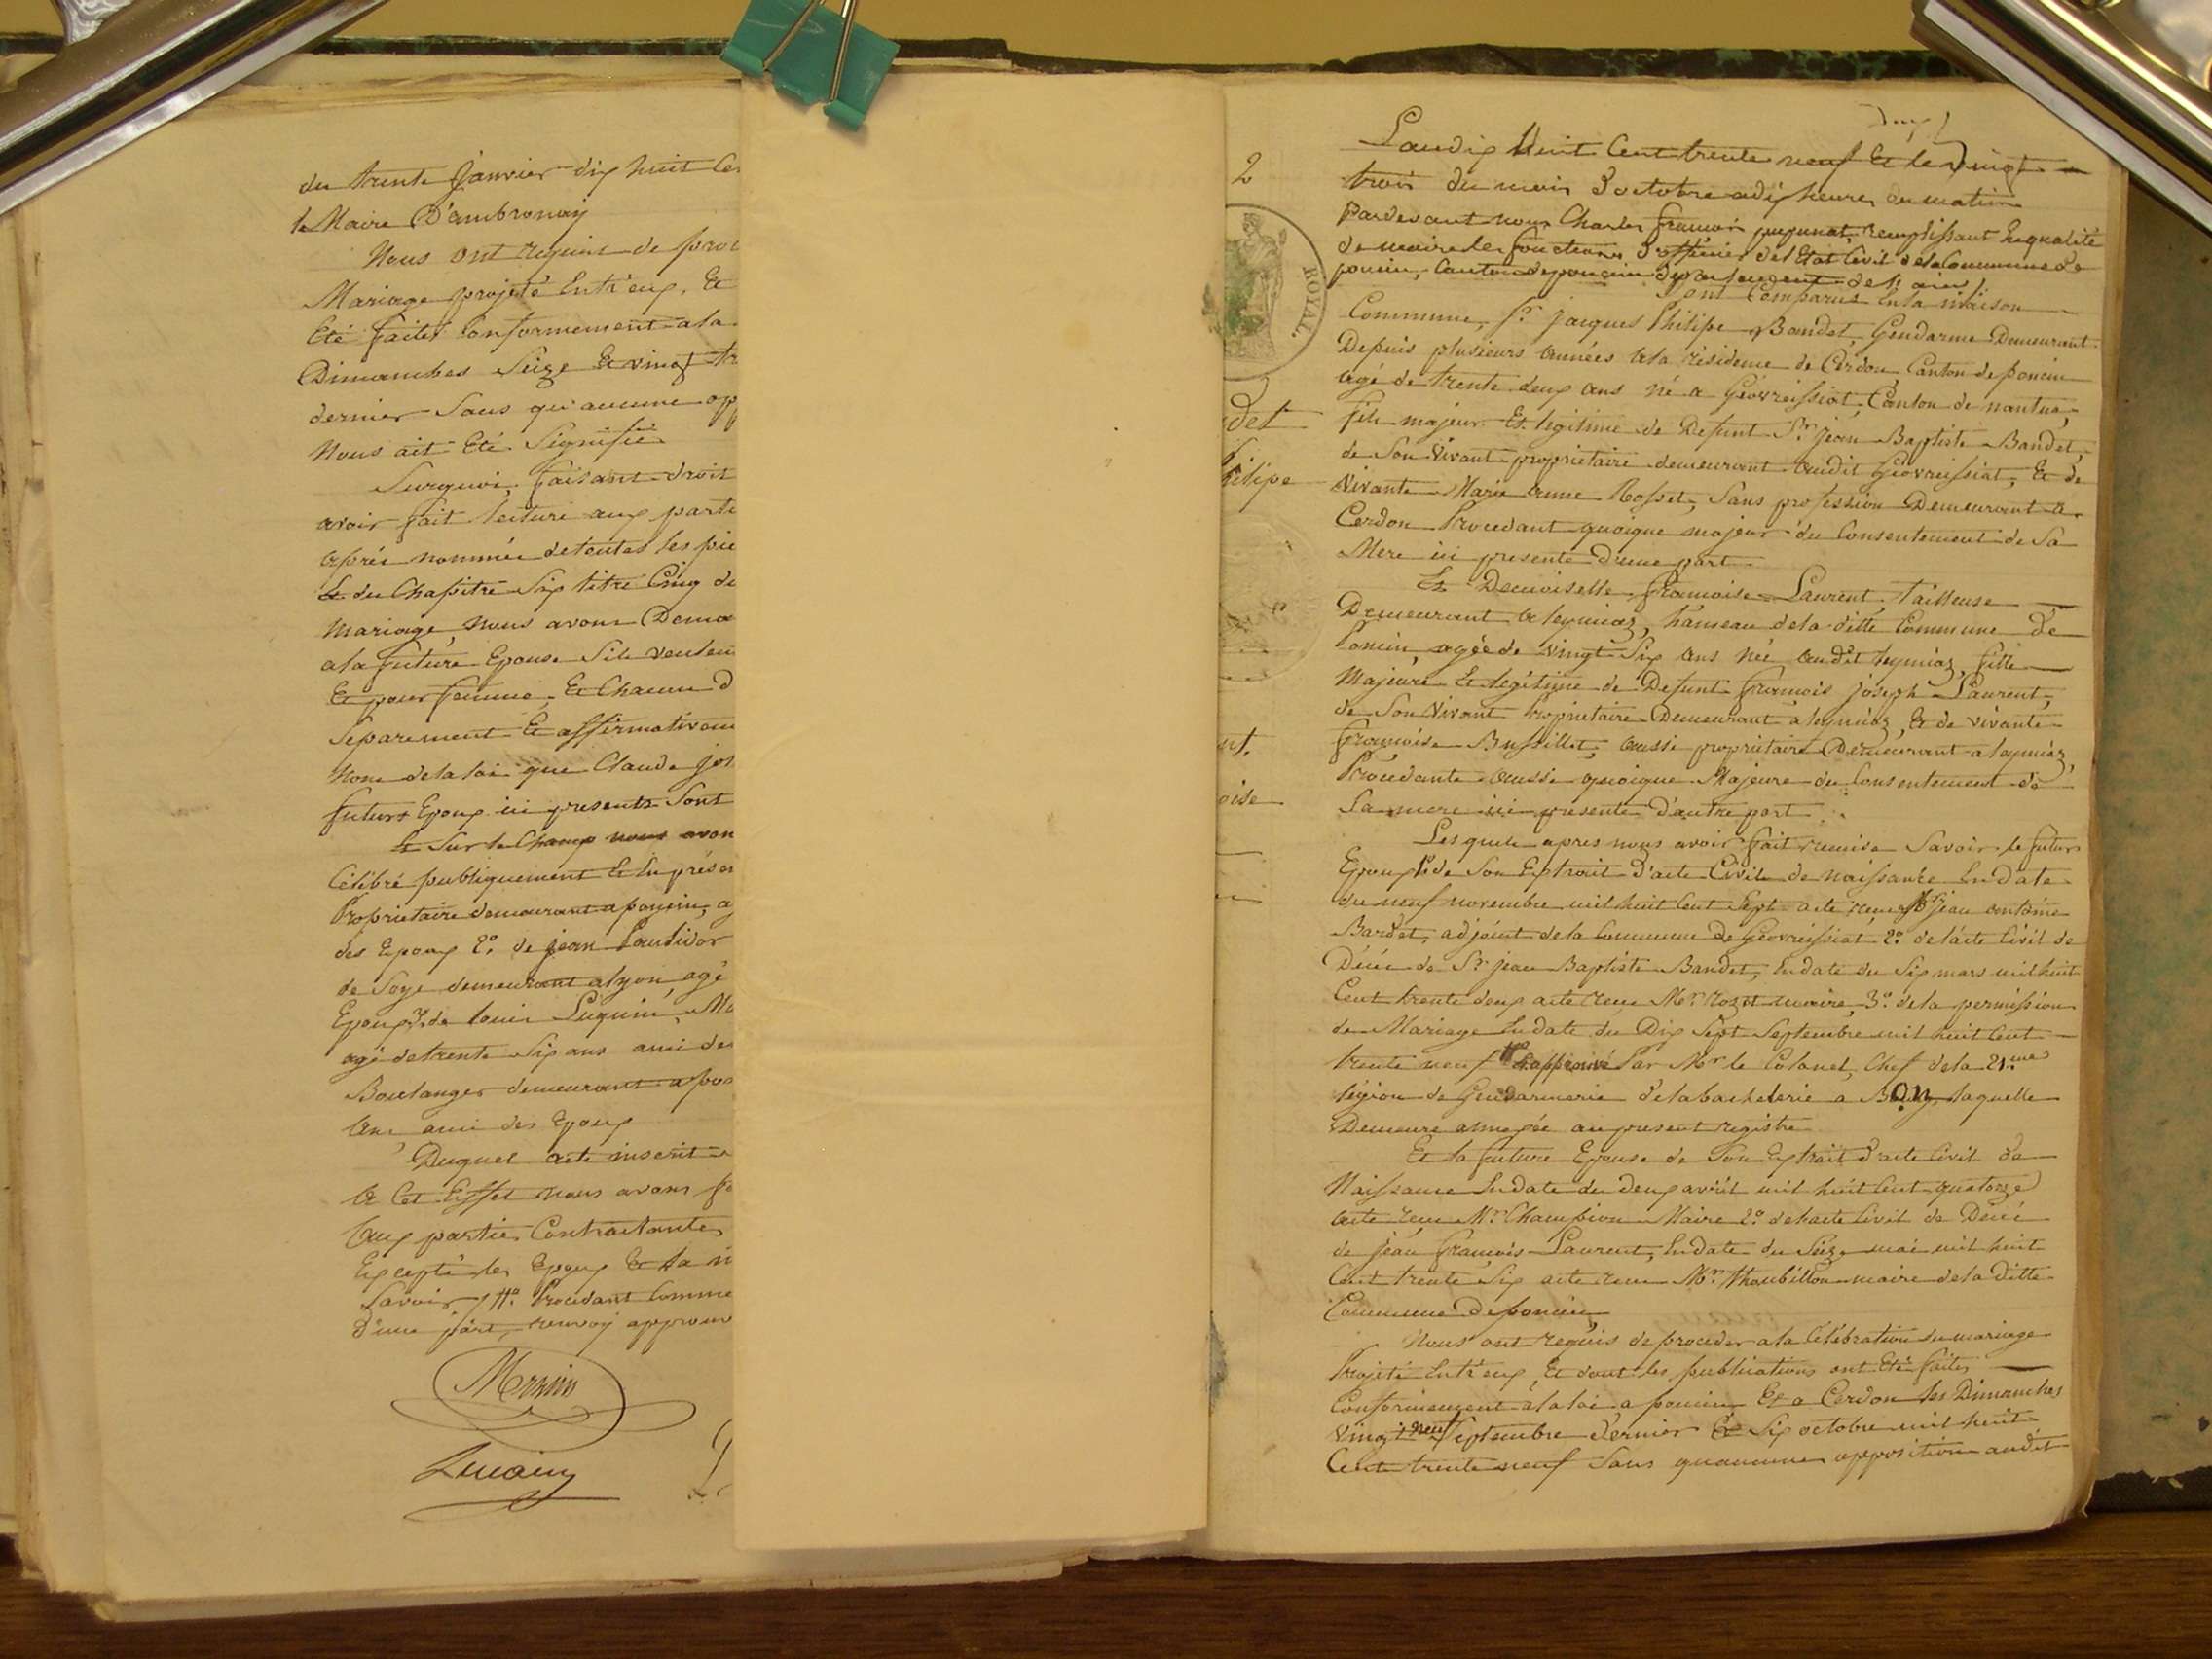 du trente Janvier dix huit Cen
le Maire D'ambronay
Nous ont requis de proc
Mariage projeté Entr'eux, Et
Eté faites Conformement a la
Dimanches Seize Et vingt tr
dernier Sans qu'aucune opp
Nous ait Eté Signifié
Surquoi, faisant droit
avoir fait lecture aux parti
après nommée de toutes les piè
Et du Chapitre Six titre Cinq du
Mariage, nous avons Dema
a la future Epouse S'ils veulen
Et pour femme, Et Chacun d
Separement Et affirmativem
Nom de la loi que Claude jos
futurs Epoux ici presents Sont
Et Sur le Champ nous avon
Célébré publiquement Et En présen
Proprietaire demeurant a poncin, ag
des Epoux 2.° de jean
de Soye demeurant a lyon, agé
Epoux 3.° de louis Ma
agé de trente Six ans ami des
Boulanger demeurant a pon
Ans, ami des Epoux
Duquel acte inscrit
a Cet Effet nous avons fa
Aux parties Contractantes
Excepté les Epoux Et la m
Savoir Procédant Comme
D'une part, renvoy approuv
2
ROYAL.
det
hilipe
nt.
oise
deux
L'an dix Huit Cent trente neuf Et le vingt
trois du mois D'octobre a dix heures du matin
Pardevant nous Charles françois remplissant En qualité
de maire les fonctions D'officier de l'Etat Civil de la Commune de
poncin, Canton de poncin departement de l'ain
Sont Comparus En la maison
Commune, S.r jacques Philipe Bandet, Gendarme Demeurant
Depuis plusieurs années a la résidence de Cerdon, Canton de poncin
agé de trente deux ans né a Géovreissiat, Canton de nantua,
fils majeur Et legitime de Defunt S.r jean Baptiste Bandet,
de Son Vivant proprietaire demeurant audit Géovreissiat, Et de
Vivante Marie anne Rosset, Sans profession Demeurant a
Cerdon Procedant quoique majeur du Consentement de Sa
Mere ici presente D'une part
Et Demoiselle françoise Laurent, tailleuse
Demeurant a leymiaz, hameau de la ditte Commune de
Poncin, agée de vingt Six ans née audit leymiaz, fille
Majeure Et legitime de Defunt françois joseph Laurent,
de Son Vivant Proprietaire Demeurant a leymiaz, Et de vivante
françoise Bussillet, aussi proprietaire Demeurant a leymiaz,
Procedante aussi quoique Majeure du Consentement de
Sa mere ici presente D'autre part
Lesquels apres nous avoir fait remise Savoir le futur
Epoux 1.° de Son Extrait D'acte Civil de naissance En date
du neuf novembre mil huit Cent Sept acte reçu jean antoine
Bardet, adjoint de la Commune De Géovreissiat 2.° de l'acte Civil de
Décès de S.r jean Baptiste Bandet, En date du Six mars mil huit
Cent trente deux acte reçu M.r rozet maire, 3.° de la permission
de Mariage En date du Dix Sept Septembre mil huit Cent
trente neuf approuvé Par M.r le Colonel, Chef de la 21.me
légion de Gendarmerie laquelle
Demeure annexée au present registre
Et la future Epouse de Son Extrait D'acte Civil de
Naissance En date du deux avril mil huit Cent quatorze
acte reçu M.r Champion Maire 2.° de l'acte Civil de Décès
de jean françois Laurent, En date du Seize mai mil huit
Cent trente Six acte reçu M.r Maire de la Ditte
Commune De poncin
Nous ont requis de proceder a la Célébration du mariage
Projété Entr'eux, Et dont les publications ont Eté faites
Conformément à la loi a poncin Et a Cerdon les Dimanches
vingt neuf Septembre Dernier Et Six octobre mil huit
Cent trente neuf Sans qu'aucune opposition audit